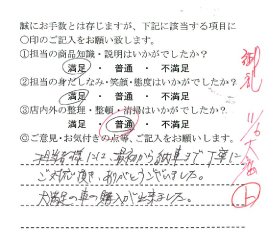 誠にお手数とは存じますが、下記に該当する項目に
〇印のご記入をお願い致します。
①担当の商品知識・説明はいかがでしたか?
満足 ・ 普通 ・ 不満足
②担当の身だしなみ・笑顔・態度はいかがでしたか?
満足 ・ 普通 ・ 不満足
③店内外の整理・整頓・清掃はいかがでしたか?
満足 ・ 普通 ・ 不満足
◎ご意見・お気付きの点等、ご記入をお願いします。
担当者様には、最初から納車まで丁寧に
ご対応頂き、ありがとうございました。
大満足の車の購入が出来ました。
御礼
11/6
上